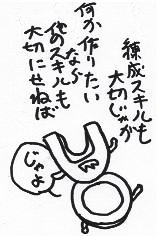 練成スキルも
大切じゃが
何か作りたい
なら
他のスキルも
大切にせねば
じゃよ